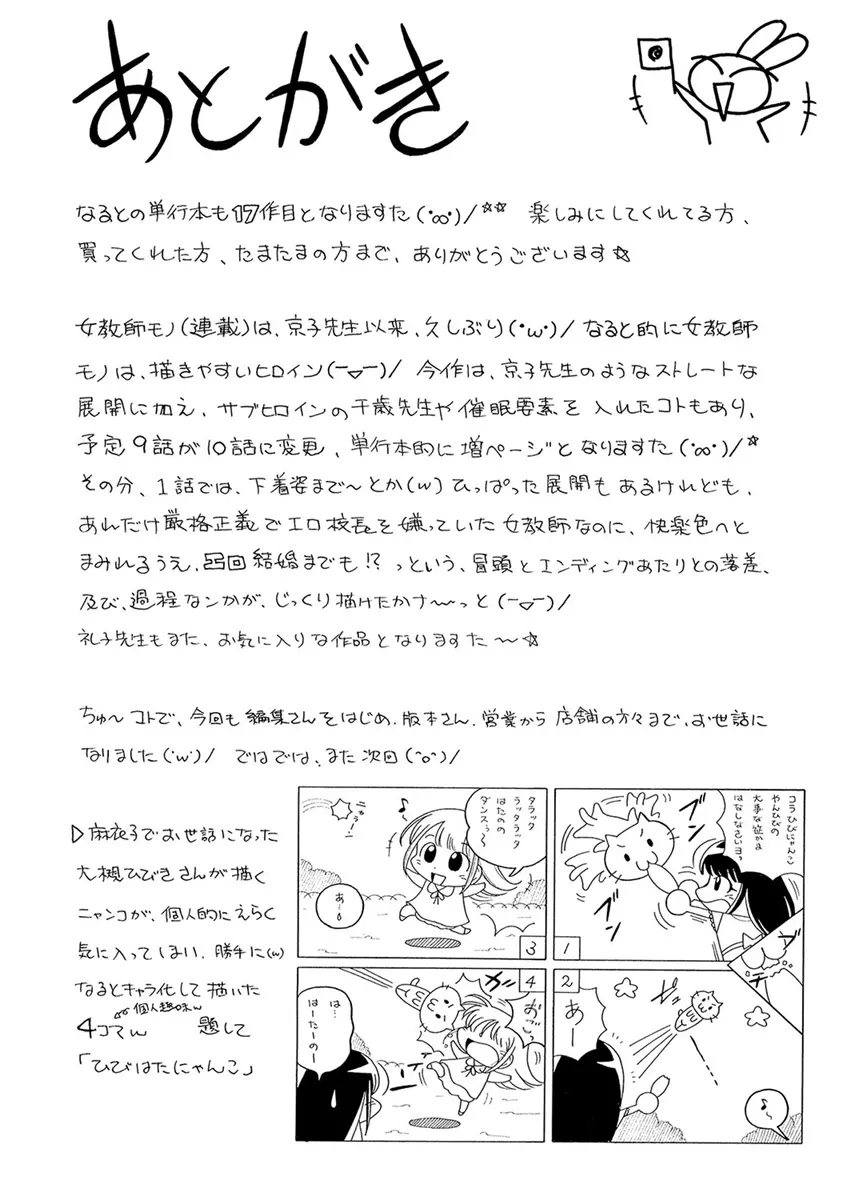 あとがき
なるとの単行本も17作目となりますた(・∞・)/☆☆ 楽しみにしてくれてる方、
買ってくれた方、たまたまの方まで、ありがとうございます☆
女教師モノ(連載)は、京子先生以来、久しぶり(・ω・)/ なると的に女教師
モノは、描きやすいヒロイン(ー▽ー)/ 今作は、京子先生のようなストレートな
展開に加え、サブヒロインの千歳先生や催眠要素を入れたコトもあり、
予定9話が10話に変更、単行本的に増ページとなりますた(・∞・)/☆
その分、1話では、下着姿まで〜とか(w)ひっぱった展開もあるけれども、
あれだけ厳格正義でエロ校長を嫌っていた女教師なのに、快楽色へと
まみれるうえ、凸凹結婚までも!?っという、冒頭とエンディングあたりとの落差、
及び、過程なンかが、じっくり描けたかナ〜っと(ー▽ー)/
礼子先生もまた、お気に入りな作品となりますた〜☆
ちゅ〜コトで、今回も編集さんをはじめ、版本さん、営業から店舗の方々まで、お世話に
なりました(・w・)/ ではでは、また次回(^o^)/
▷麻衣子でお世話になった
大槻ひびきさんが描く
ニャンコが、個人的にえらく
気に入ってしまい、勝手に(w)
なるとキャラ化して描いた
個人趣味w
4コマw 題して
「ひびはたにゃんこ」
コラひびにゃんこ
やんひびの
大事な
はなしなさいヨっ
ブン
ブン
1
あー
♪〜
2
タラッタ
ラッタラッタ
はたのの
ダンスぅ〜
♪
にゃぅー!
あー
3
おごっ
ガン
は…
はーたーのー
4